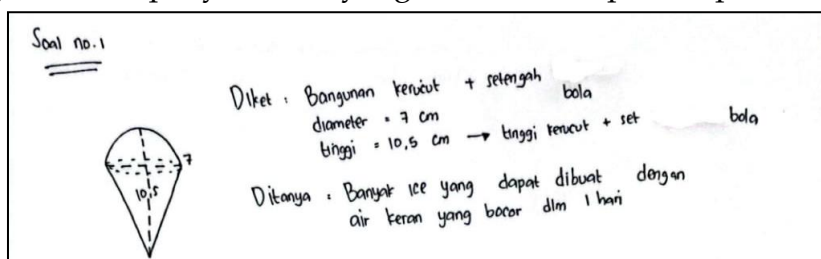 Soal no. 1
Diket : Bangunan kerucut + setengah bola
diameter = 7 cm
tinggi = 10,5 cm → tinggi kerucut + set bola
7
10,5
Ditanya : Banyak ice yang dapat dibuat dengan
air keran yang bocor dlm 1 hari